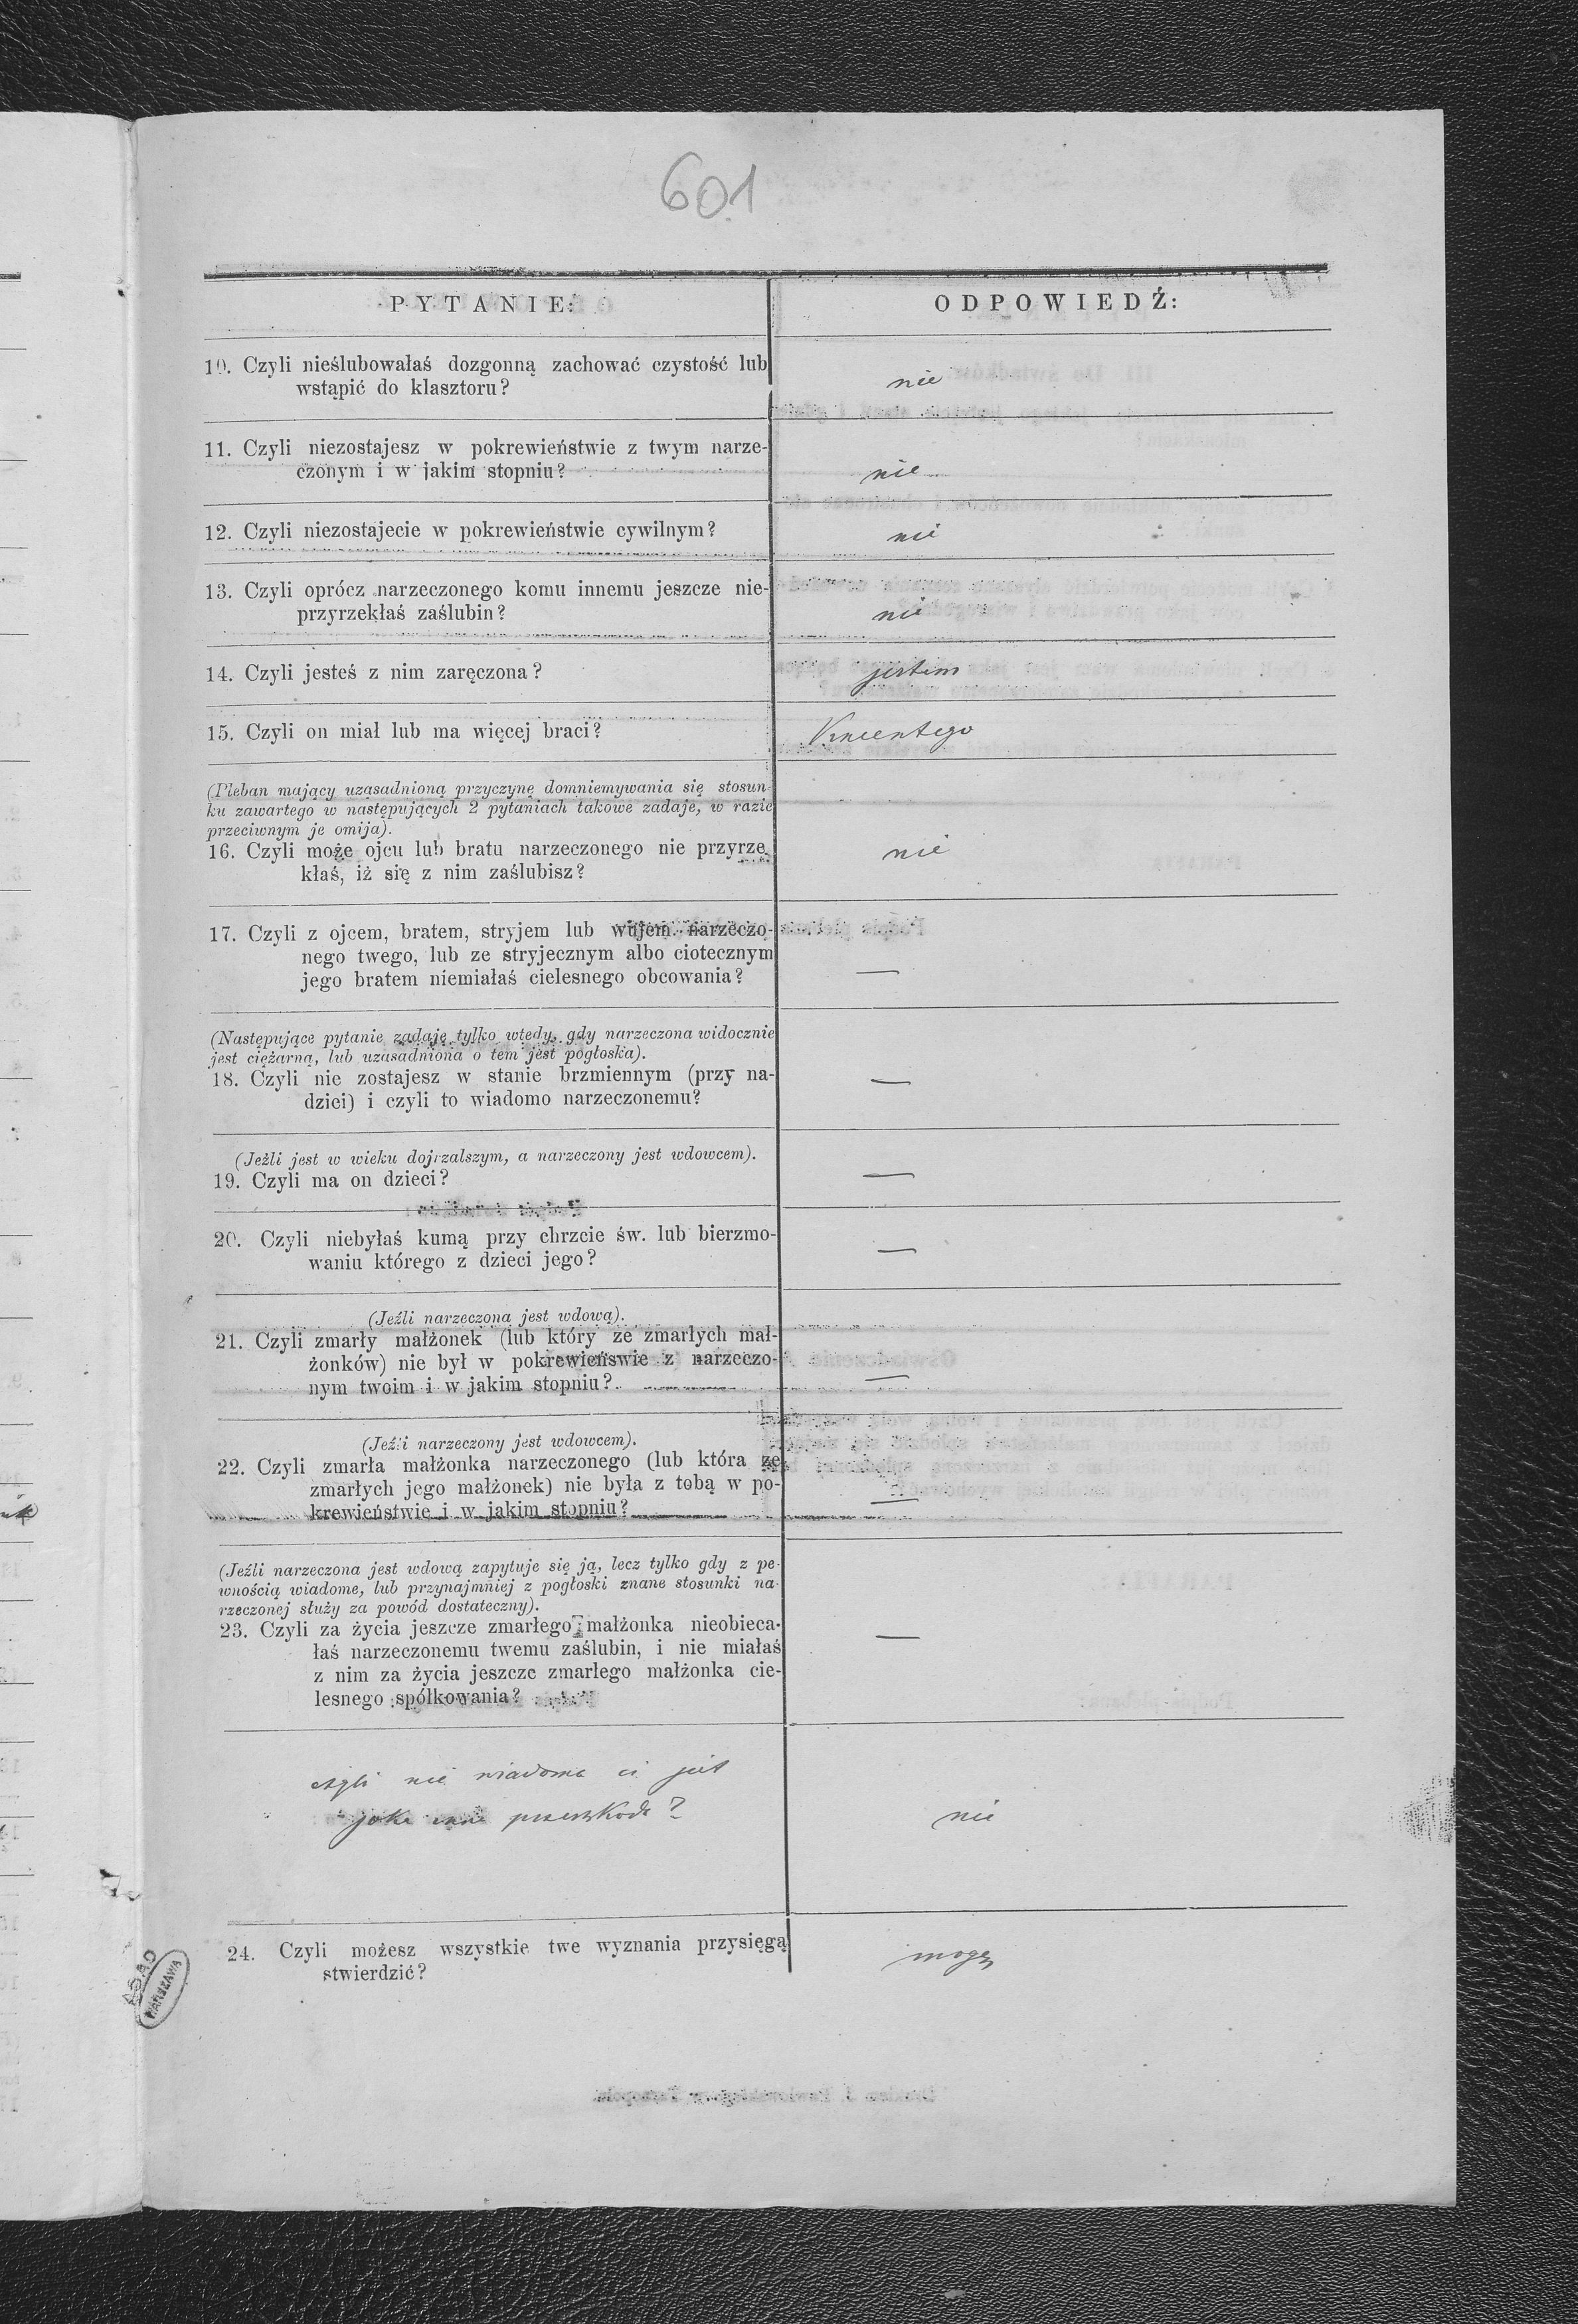 601
PYTANIE:
ODPOWIEDŹ:
10. Czyli nieślubowałaś dozgonną zachować czystość lub
wstąpić do klasztoru?
nie
11. Czyli niezostajesz w pokrewieństwie z twym narze-
czonym i w jakim stopniu?
nie
12. Czyli niezostajecie w pokrewieństwie cywilnym?
nie
13. Czyli oprócz narzeczonego komu innemu jeszcze nie-
przyrzekłaś zaślubin?
nie
14. Czyli jesteś z nim zaręczona?
jestem
15. Czyli on miał lub ma więcej braci?
(Pleban mający uzasadnioną przyczynę domniemywania się stosun-
ku zawartego w następujących 2 pytaniach takowe zadaje, w razie
przeciwnym je omija).
16. Czyli może ojcu lub bratu narzeczonego nie przyrze-
kłaś, iż się z nim zaślubisz?
nie
17. Czyli z ojcem, bratem, stryjem lub wujem narzeczo-
nego twego, lub ze stryjecznym albo ciotecznym
jego bratem niemiałaś cielesnego obcowania?
—
(Następujące pytanie zadaję tylko wtedy, gdy narzeczona widocznie
jest ciężarną, lub uzasadniona o tem jest pogłoska).
18. Czyli nie zostajesz w stanie brzmiennym (przy na-
dziei) i czyli to wiadomo narzeczonemu?
—
(Jeżli jest w wieku dojrzalszym, a narzeczony jest wdowcem).
19. Czyli ma on dzieci?
—
20. Czyli niebyłaś kumą przy chrzcie św. lub bierzmo-
waniu którego z dzieci jego?
—
(Jeźli narzeczona jest wdową).
21. Czyli zmarły małżonek (lub który ze zmarłych mał-
żonków) nie był w pokrewieńswie z narzeczo-
nym twoim i w jakim stopniu?
—
(Jeźli narzeczony jest wdowcem).
22. Czyli zmarła małżonka narzeczonego (lub która ze
zmarłych jego małżonek) nie była z tobą w po-
krewieństwie i w jakim stopniu?
—
(Jeźli narzeczona jest wdową zapytuje się ją, lecz tylko gdy z pe-
wnością wiadome, lub przynajmniej z pogłoski znane stosunki na-
rzeczonej służy za powód dostateczny).
23. Czyli za życia jeszcze zmarłego małżonka nieobieca-
łaś narzeczonemu twemu zaślubin, i nie miałaś
z nim za życia jeszcze zmarłego małżonka cie-
lesnego spółkowania?
—
czyli nie wiadoma ci jest
jaka inna przeszkoda?
nie
24. Czyli możesz wszystkie twe wyznania przysięgą
stwierdzić?
mogę
AGAD
WARSZAWA